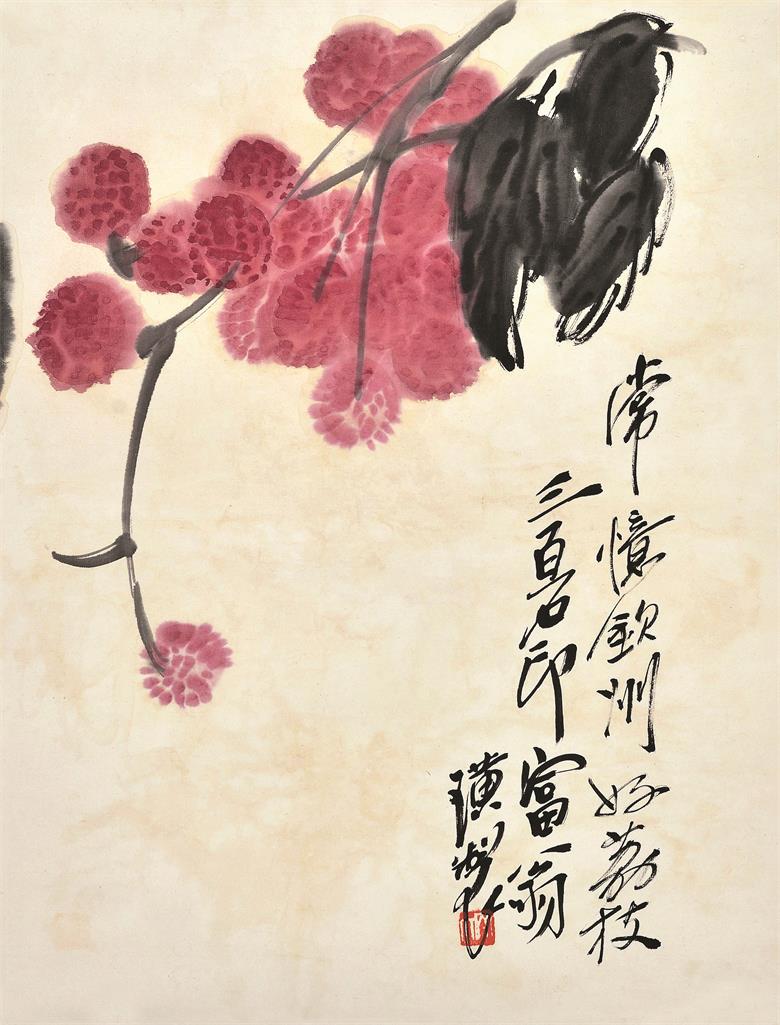 常憶欽州好荔枝
三百石印富翁
璜製